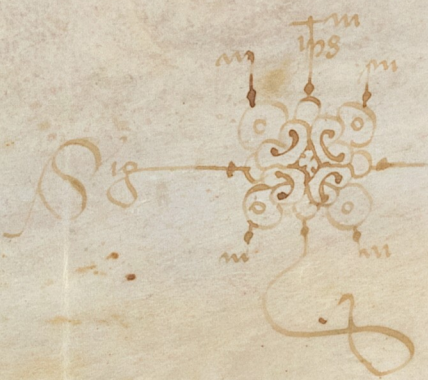 m
ihs
m m
Sig
m m